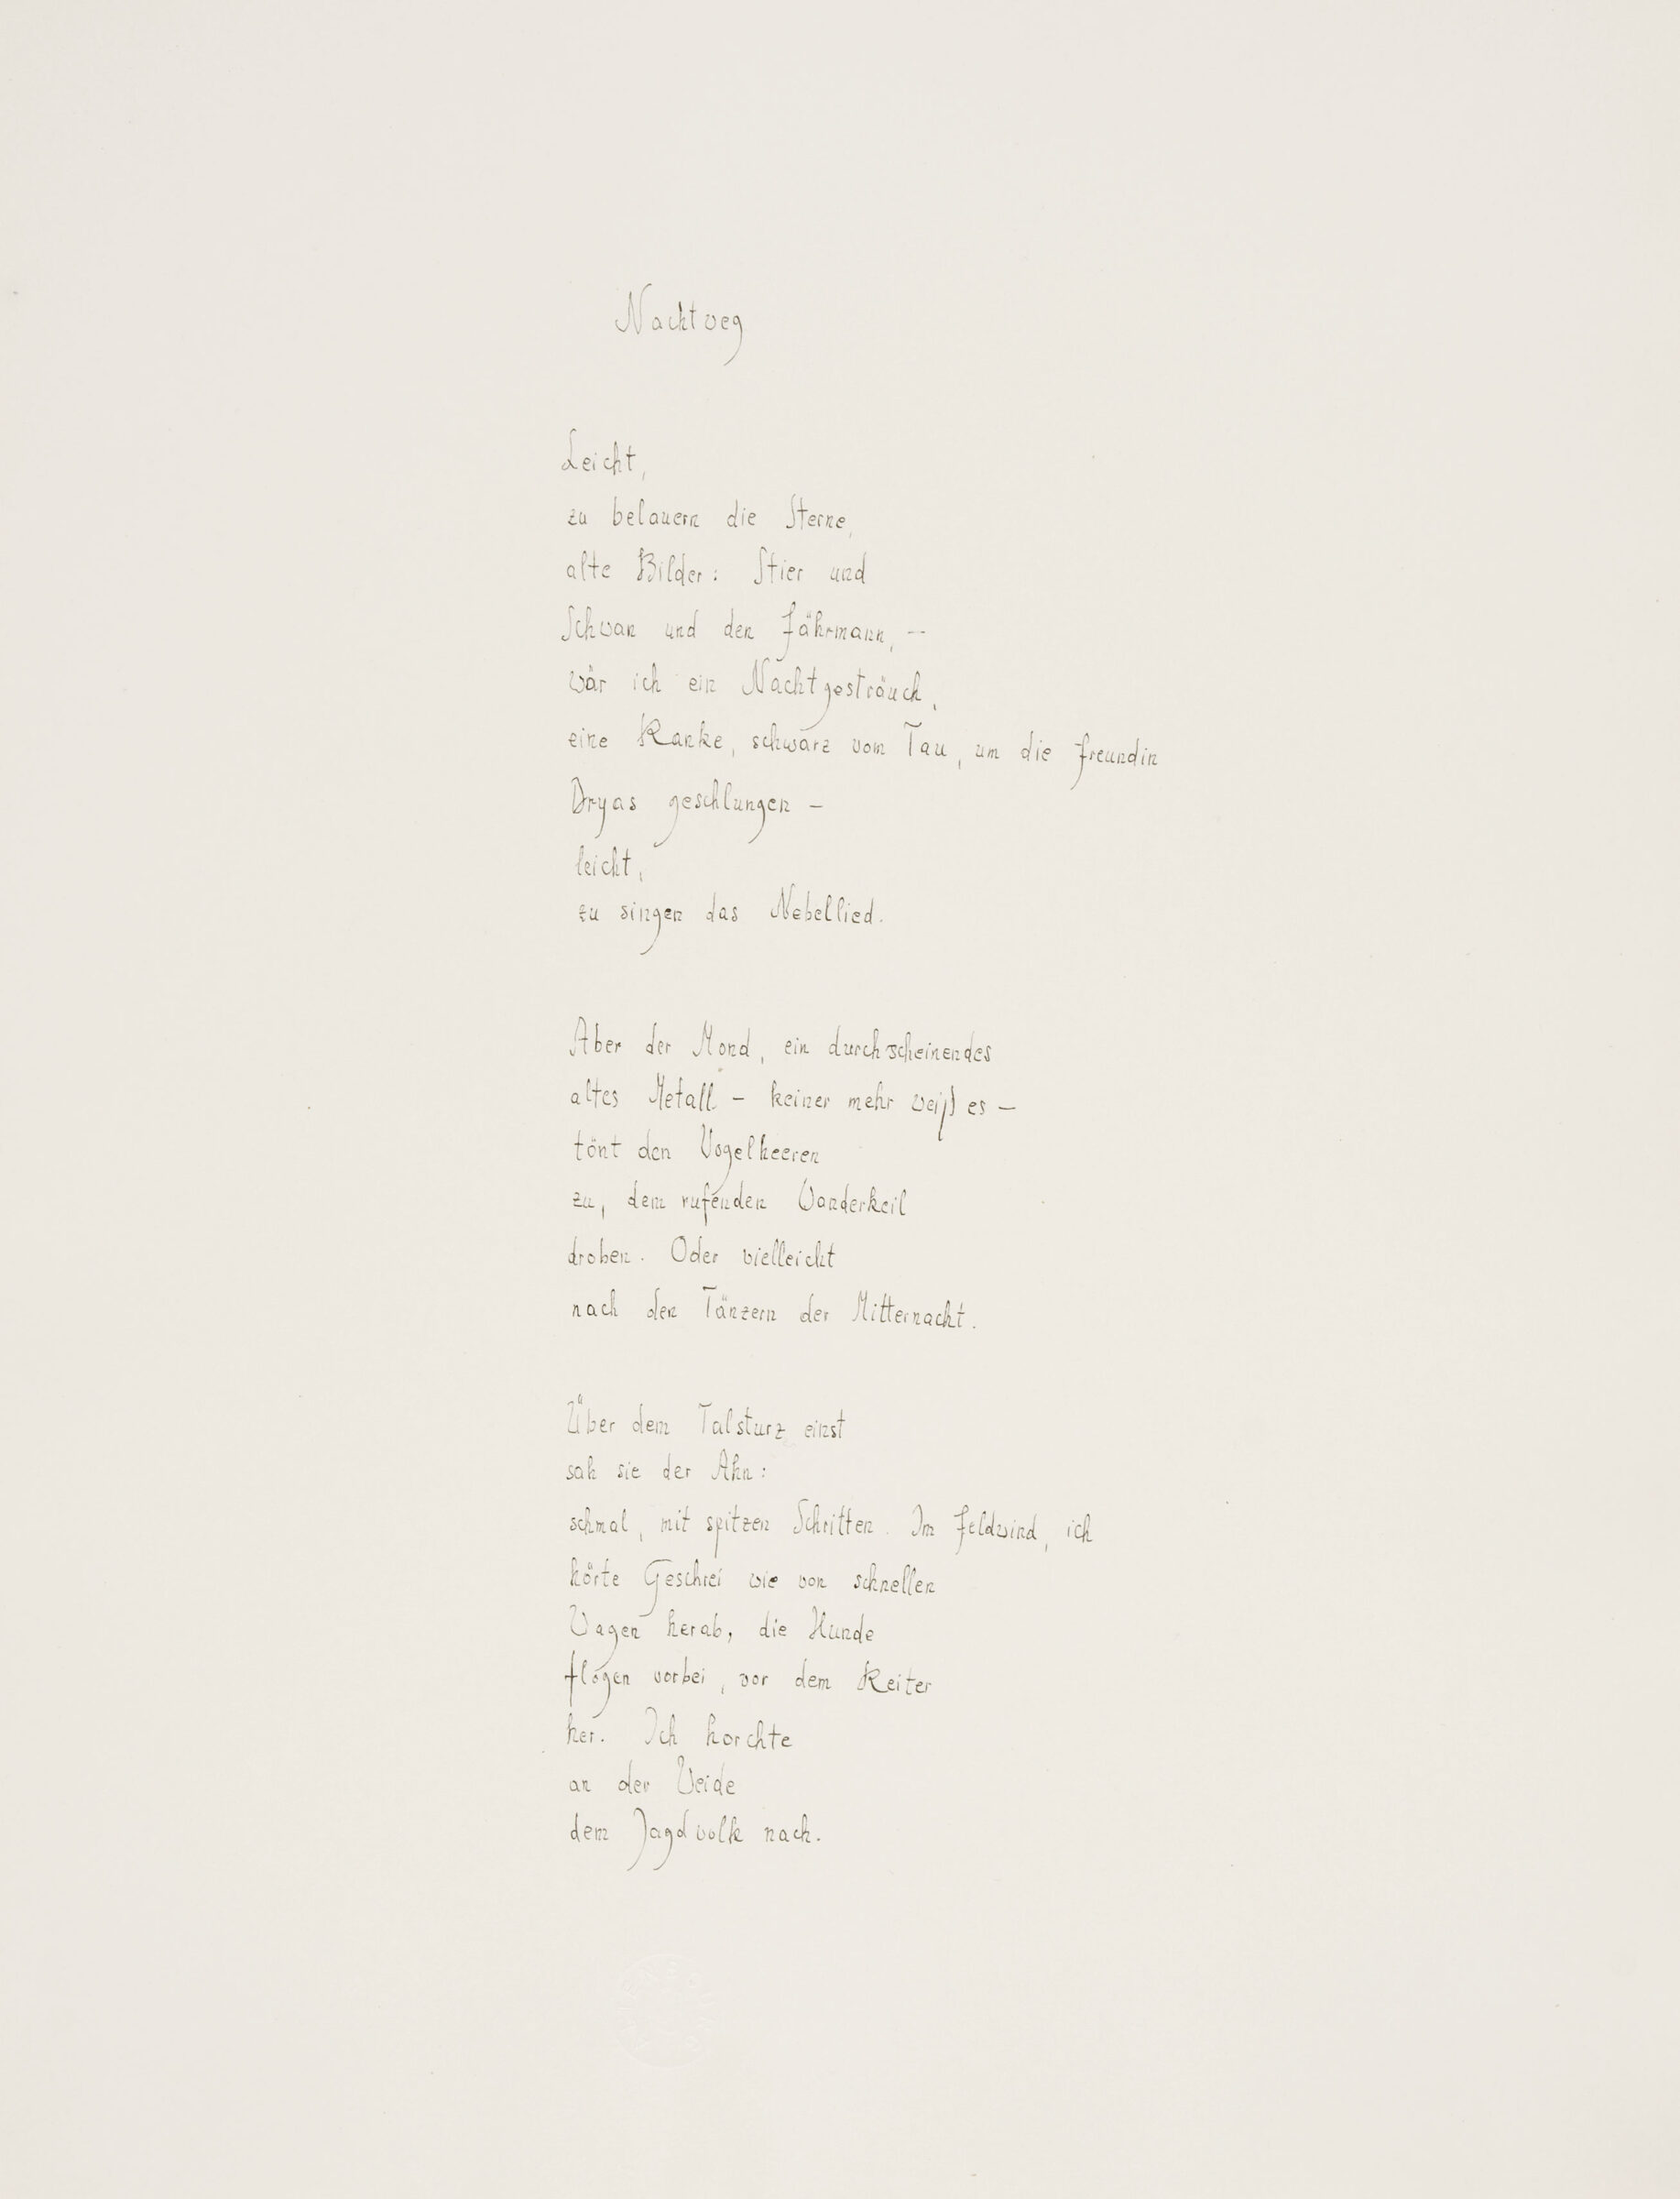 Nachtweg
Leicht,
zu belauern die Sterne,
alte Bilder: Stier und
Schwan und den Fährmann, –
wär ich ein Nachtgesträuch,
eine Ranke, schwarz vom Tau, um die Freundin
Dryas geschlungen –
leicht,
zu singen das Nebellied.
Aber der Mond, ein durchscheinendes
altes Metall – keiner mehr weiß es –
tönt den Vogelheeren
zu, dem rufenden Wanderkeil
droben. Oder vielleicht
nach den Tänzern der Mitternacht.
Über dem Talsturz einst
sah sie der Ahn:
schmal, mit spitzen Schritten. Im Feldwind, ich
hörte Geschrei wie von schnellen
Wagen herab, die Hunde
flogen vorbei, vor dem Reiter
her. Ich horchte
an der Weide
dem Jagdvolk nach.